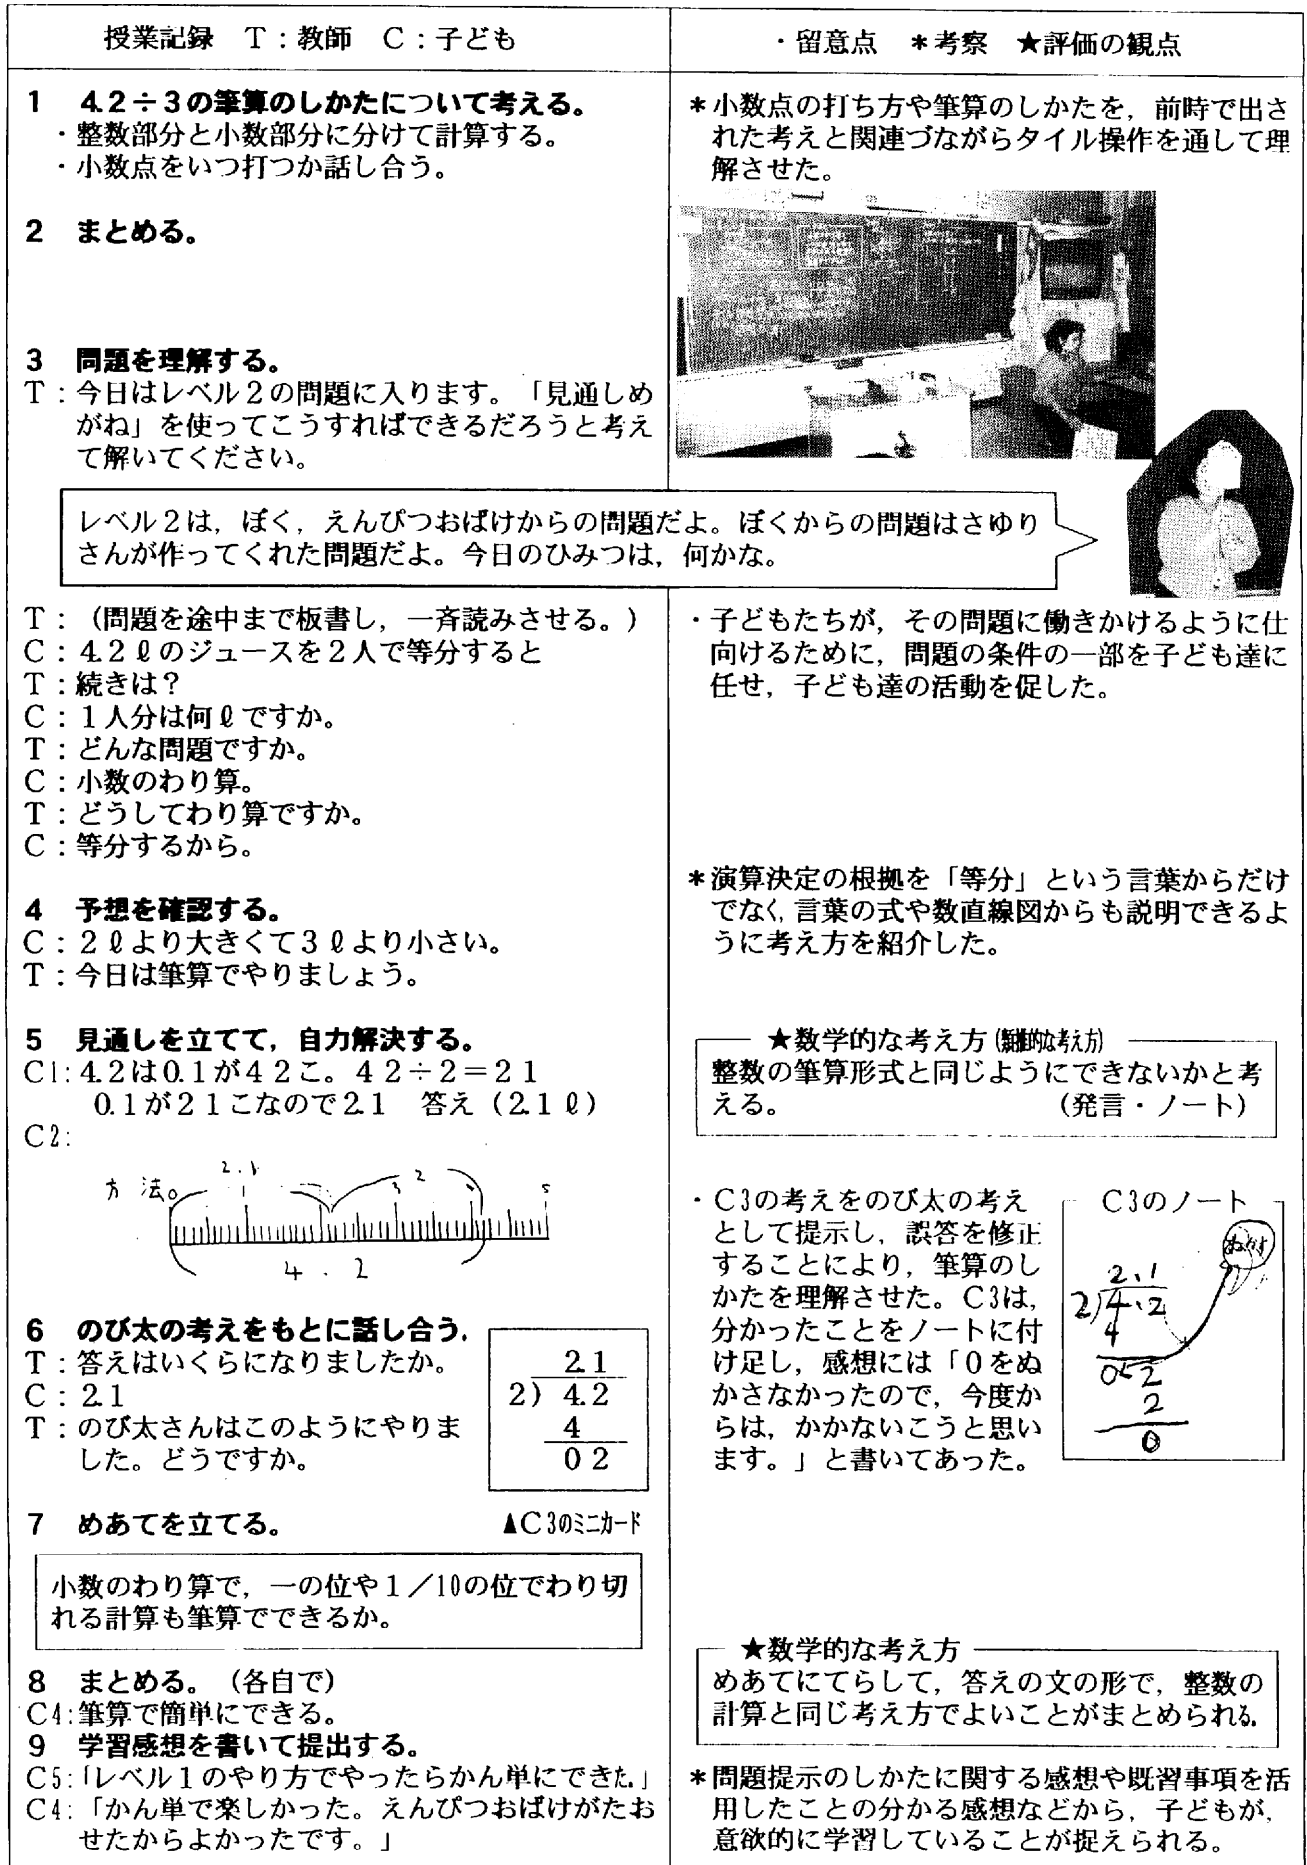 授業記録　T：教師　C：子ども
1　4.2÷3の筆算のしかたについて考える。
・整数部分と小数部分に分けて計算する。
・小数点をいつ打つか話し合う。
2　まとめる。
3　問題を理解する。
T：今日はレベル2の問題に入ります。「見通しめ
がね」を使ってこうすればできるだろうと考え
て解いてください。
レベル2は，ぼく，えんぴつおばけからの問題だよ。ぼくからの問題はさゆり
さんが作ってくれた問題だよ。今日のひみつは，何かな。
T：（問題を途中まで板書し，一斉読みさせる。）
C：4.2ℓのジュースを2人で等分すると
T：続きは？
C：1人分は何ℓですか。
T：どんな問題ですか。
C：小数のわり算。
T：どうしてわり算ですか。
C：等分するから。
4　予想を確認する。
C：2ℓより大きくて3ℓより小さい。
T：今日は筆算でやりましょう。
5　見通しを立てて，自力解決する。
C1：4.2は0.1が42こ。42÷2＝21
0.1が21こなので2.1　答え（2.1ℓ）
C2：
2.1　2
方法。0　1　3　5
4.2
6　のび太の考えをもとに話し合う。
T：答えはいくらになりましたか。
C：2.1
T：のび太さんはこのようにやりま
した。どうですか。
2.1
2）4.2
4
02
7　めあてを立てる。　▲C3のミニカード
小数のわり算で，一の位や1／10の位でわり切
れる計算も筆算でできるか。
8　まとめる。（各自で）
C4：筆算で簡単にできる。
9　学習感想を書いて提出する。
C5：「レベル1のやり方でやったらかん単にできた。」
C4：「かん単で楽しかった。えんぴつおばけがたお
せたからよかったです。」
・留意点　＊考察　★評価の観点
＊小数点の打ち方や筆算のしかたを，前時で出さ
れた考えと関連づながらタイル操作を通して理
解させた。
・子どもたちが，その問題に働きかけるように仕
向けるために，問題の条件の一部を子ども達に
任せ，子ども達の活動を促した。
＊演算決定の根拠を「等分」という言葉からだけ
でなく，言葉の式や数直線図からも説明できるよ
うに考え方を紹介した。
★数学的な考え方
整数の筆算形式と同じようにできないかと考
える。　（発言・ノート）
・C3の考えをのび太の考え
として提示し，誤答を修正
することにより，筆算のし
かたを理解させた。C3は，
分かったことをノートに付
け足し，感想には「0をぬ
かさなかったので，今度か
らは，かかないこうと思い
ます。」と書いてあった。
C3のノート
2.1
2）4.2
4
02
2
0
★数学的な考え方
めあてにてらして，答えの文の形で，整数の
計算と同じ考え方でよいことがまとめられる。
＊問題提示のしかたに関する感想や既習事項を活
用したことの分かる感想などから，子どもが，
意欲的に学習していることが捉えられる。